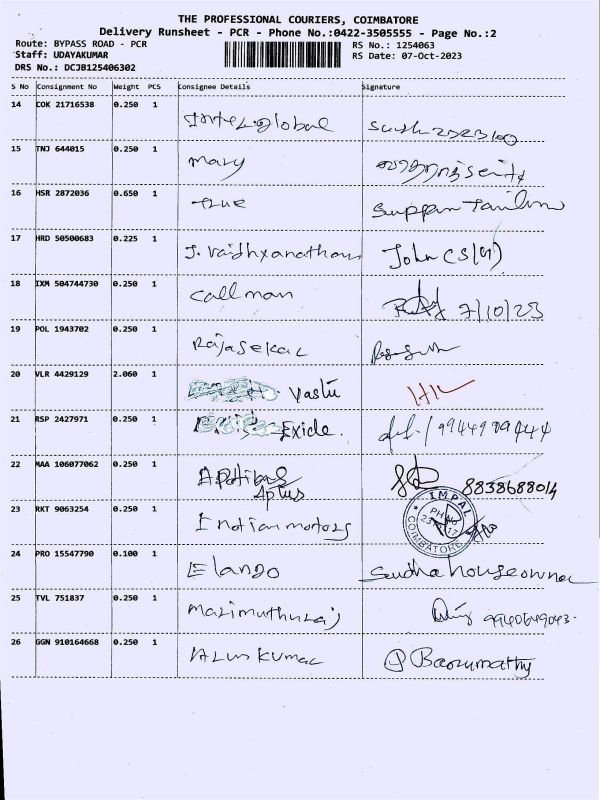 THE PROFESSIONAL COURIERS, COIMBATORE
Delivery Runsheet - PCR - Phone No.:0422-3505555 - Page No.:2
Route: BYPASS ROAD - PCR RS No.: 1254063
Staff: UDAYAKUMAR RS Date: 07-Oct-2023
DRS No.: DCJB125406302
S No Consignment No Weight PCS Consignee Details Signature
14 COK 21716538 0.250 1 Intel.global
15 TNJ 644015 0.250 1 Mary
16 HSR 2872036 0.650 1 True
17 HRD 50500683 0.225 1 J. Vaidhyanathan John CS(01)
18 IXM 504744730 0.250 1 Call man 7/10/23
19 POL 1943702 0.250 1 Rajasekar
20 VLR 4429129 2.060 1 Vastu
21 RSP 2427971 0.250 1 Exide.
22 MAA 106077062 0.250 1 Aptus 8838688014
23 RKT 9063254 0.250 1 Indian motors IMPAL COIMBATORE
24 PRO 15547790 0.100 1 Elango Sudha house owner
25 TVL 751837 0.250 1 Marimuthuraj
26 GGN 910164668 0.250 1 Arun Kumar